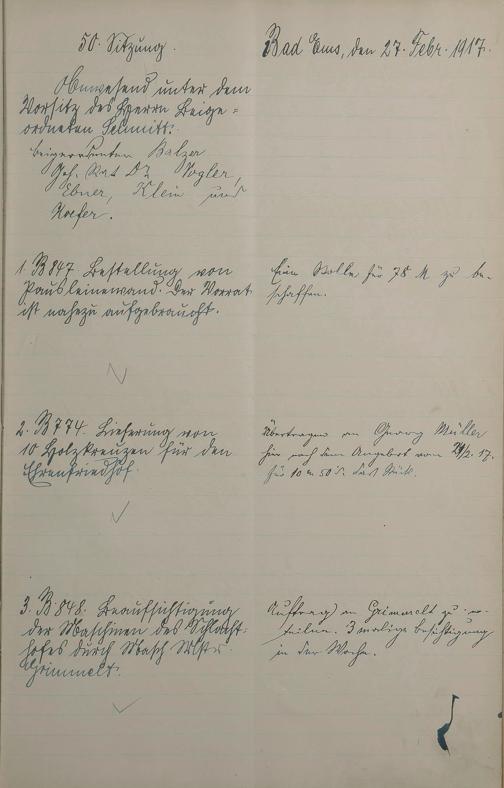 50. Sitzung.
Bad Ems, den 27. Febr. 1917.
Anwesend unter dem
Vorsitz des Herrn Beige=
ordneten Schmitt:
Beigeordneten Balzer
Geh. Rat Dr. Vogler,
Ebner, Klein und
Kaefer.
1. B 847 Bestellung von
Pausleinewand. Der Vorrat
ist nahezu aufgebraucht.
Eine Rolle für 78 M zu be-
schaffen.
2. B 774. Lieferung von
10 Holzkreuzen für den
Ehrenfriedhof.
Übertragen an Georg Müller
hier nach dem Angebot vom 24/2. 17.
für 10 M 50 das Stück.
3. B 848. Beaufsichtigung
der Maschinen des Schlacht-
hofes durch Masch Mstr.
Grimmelt.
Auftrag an Grimmelt zu er-
teilen. 3 malige Besichtigung
in der Woche.